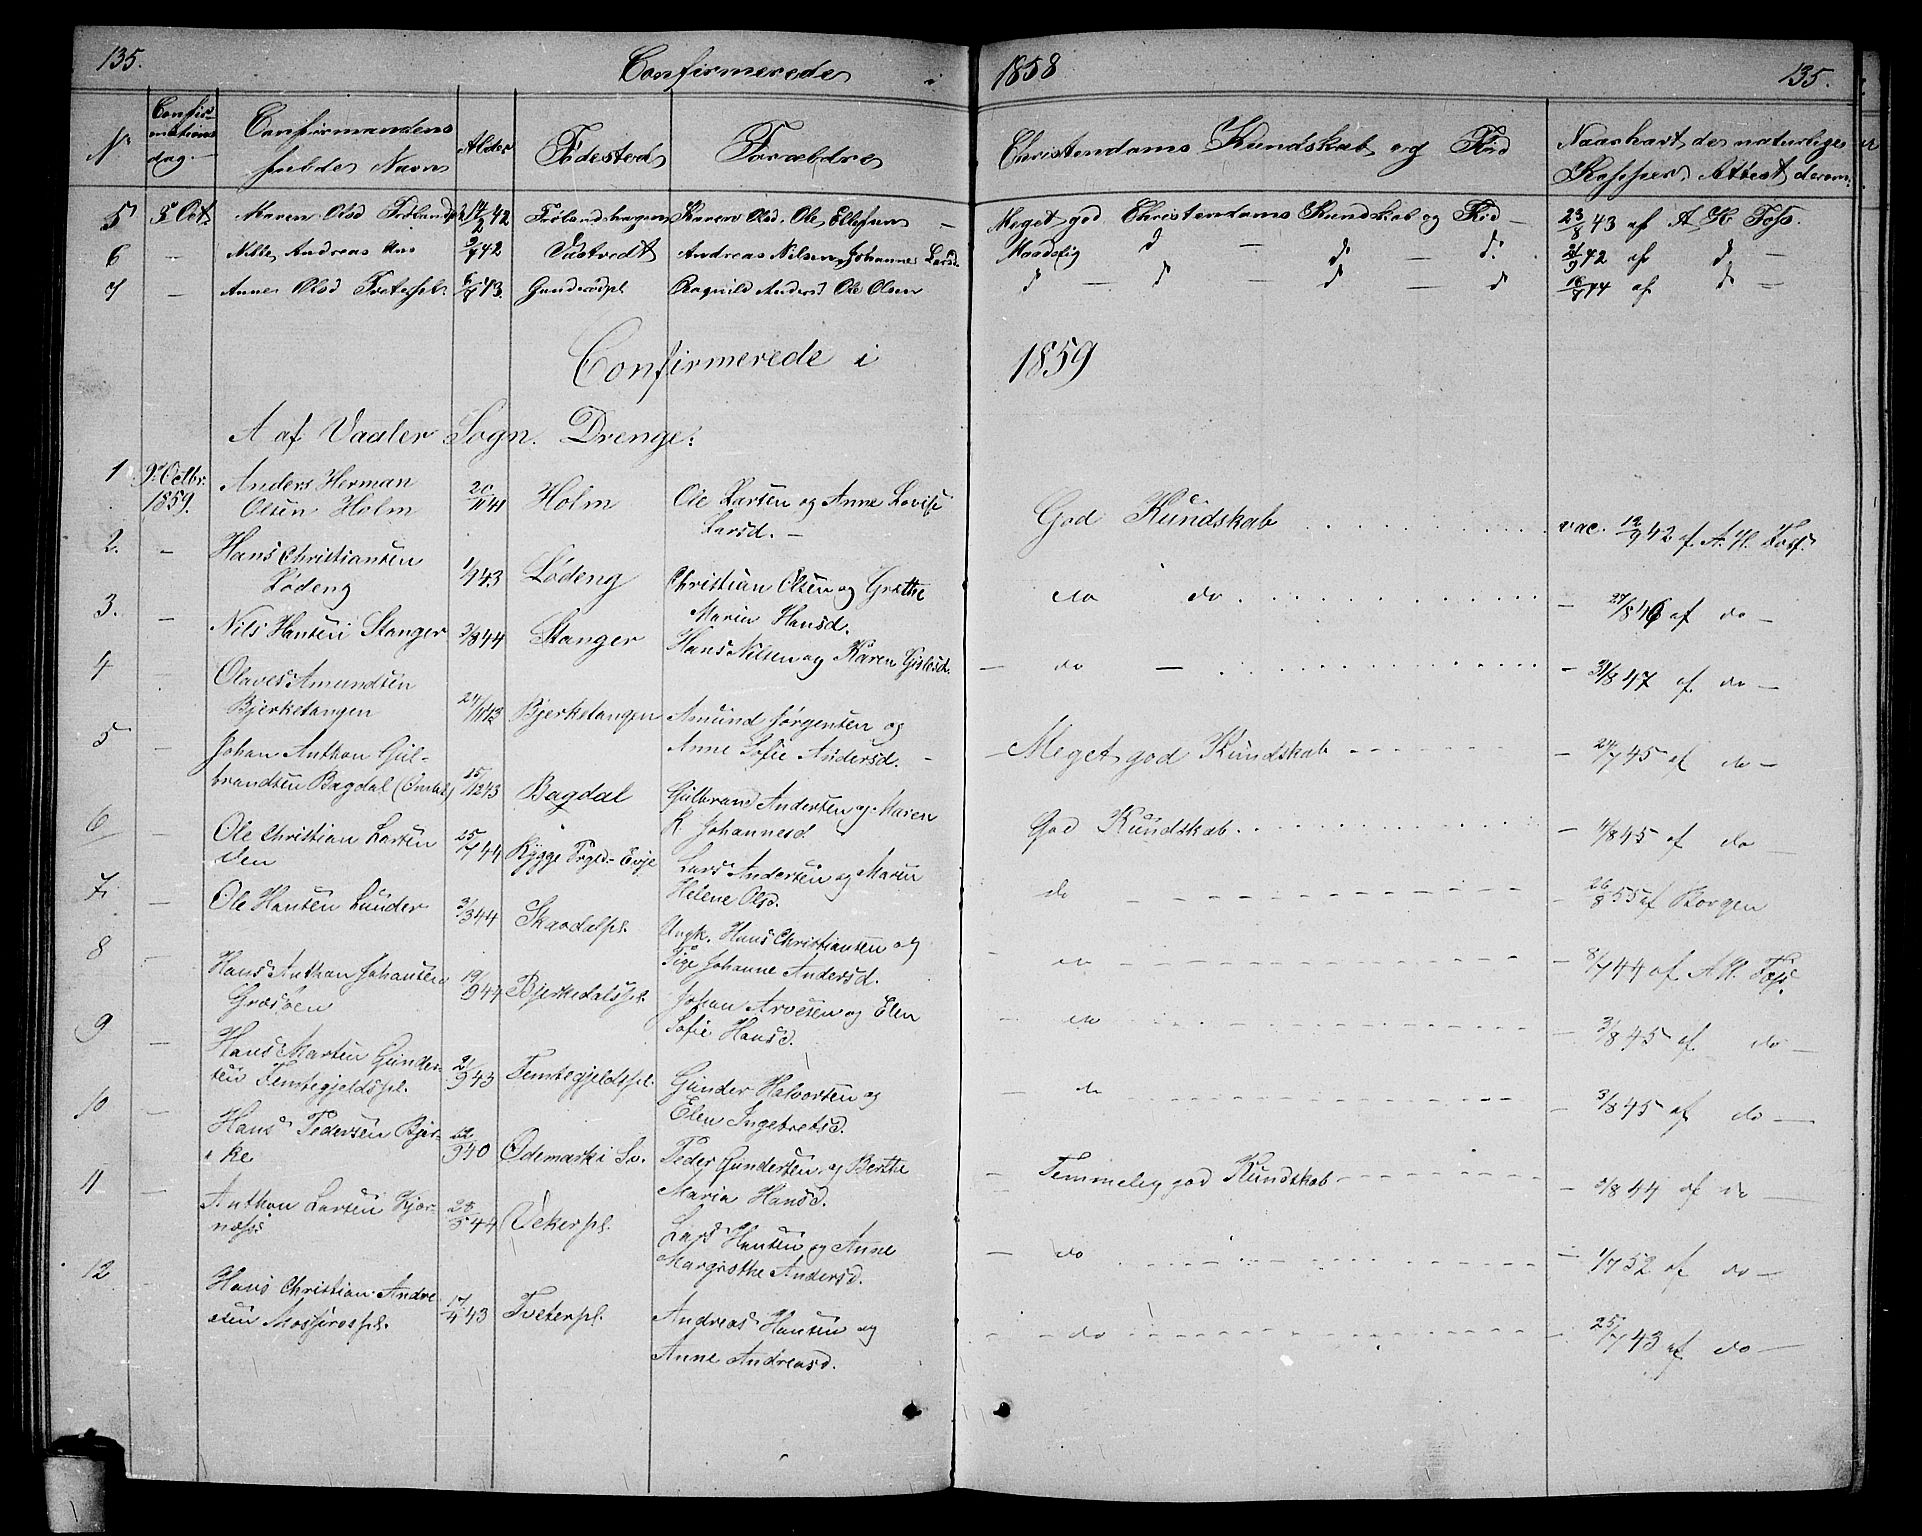 135. Confirmerede i 1858 135.
No Confirmations dag. Confirmandens fulde Navn Alder Fødested Forældre Christendoms Kundskab og Flid Naar havt de naturlige Kopper. Attest derom.
5 3 Oct. Maren Olsd 42 Karen Olsd. Ole Ellefsen — Meget god Christendoms Kundskab og Flid — 23/8 43 af A. H. Foss.
6 — Andreas 42 Andreas Nilsen, Johanne Larsd. Maadelig d — d — d. 21/9 42 af d —
7 — Anne Olsd 43. Ragnild Andersd Ole Olsen d — d — d — d 44 af d —
Confirmerede i 1859
A af Vaaler Sogn. Drenge:
1 9d Octbr. 1859. Anders Herman
Olsen Holm 20/11 41 Holm Ole Larsen og Anne Lovise
Larsd. — God Kundskab vac. 12/9 42 af A. H. Foss.
2. — Hans Christiansen
Lødeng 1/9 43 Lødeng Christian Olsen og Grethe
Maria Hansd. do do — 27/8 46 af do —
3. — Nils Hansen Stanger 3/8 44 Stanger Hans Nilsen og Karen Gislesd. — do — — 31/8 47 af do —
4 — Olaves Amundsen
Bjerketangen 24/11 43 Bjerketangen Amund Jørgensen og
Anne Sofie Andersd. — — Meget god Kundskab — 24/7 45 af do —
5 — Johan Anthon Gul-
brandsen Bagdal 15/12 43 Bagdal Gulbrand Andersen og Maren
K. Johannesd. God Kundskab. — 11/8 45 af do —
6 — Ole Christian Larsen
25/7 44 Rygge Præged— Evje Lars Andersen og Maren
Helene Olsd. do — 26/8 55 af Borgen
7. — Ole Hansen Lunder 3/3 44 Skaodalspl. Ungk. Hans Christiansen og
Pige Johanne Andersd. — do — 8/7 44 af A. H. Foss.
8 — Hans Anthon Johansen
19/9 44 Bjerkedalspl. Johan Arvesen og Elen
Sofie Hansd. — do — 3/8 45 af do —
9 — Hans Martin Gunder-
sen Femtegjeldspl. 2/9 43 Femtegjeldspl. Gunder Halvorsen og
Elen Ingebretsd. — do — 3/8 45 af do —
10 — Hans Pedersen Bjer-
ke 12/9 40 Ødemark i Sv. Peder Gundersen og Berthe
Maria Hansd. — Temmelig god Kundskab — 3/8 44 af do —
11 — Anthon Larsen Kjor-
næss 25/5 44 Vekerpl. Lars Hansen og Anne
Margrethe Andersd. — do — 1/7 52 af do —
12. — Hans Christian Andre
asen Mosserospl. 17/11 43 Tveterpl. Andreas Hansen og
Anne Andreasd. — do — 25/7 43 af do —